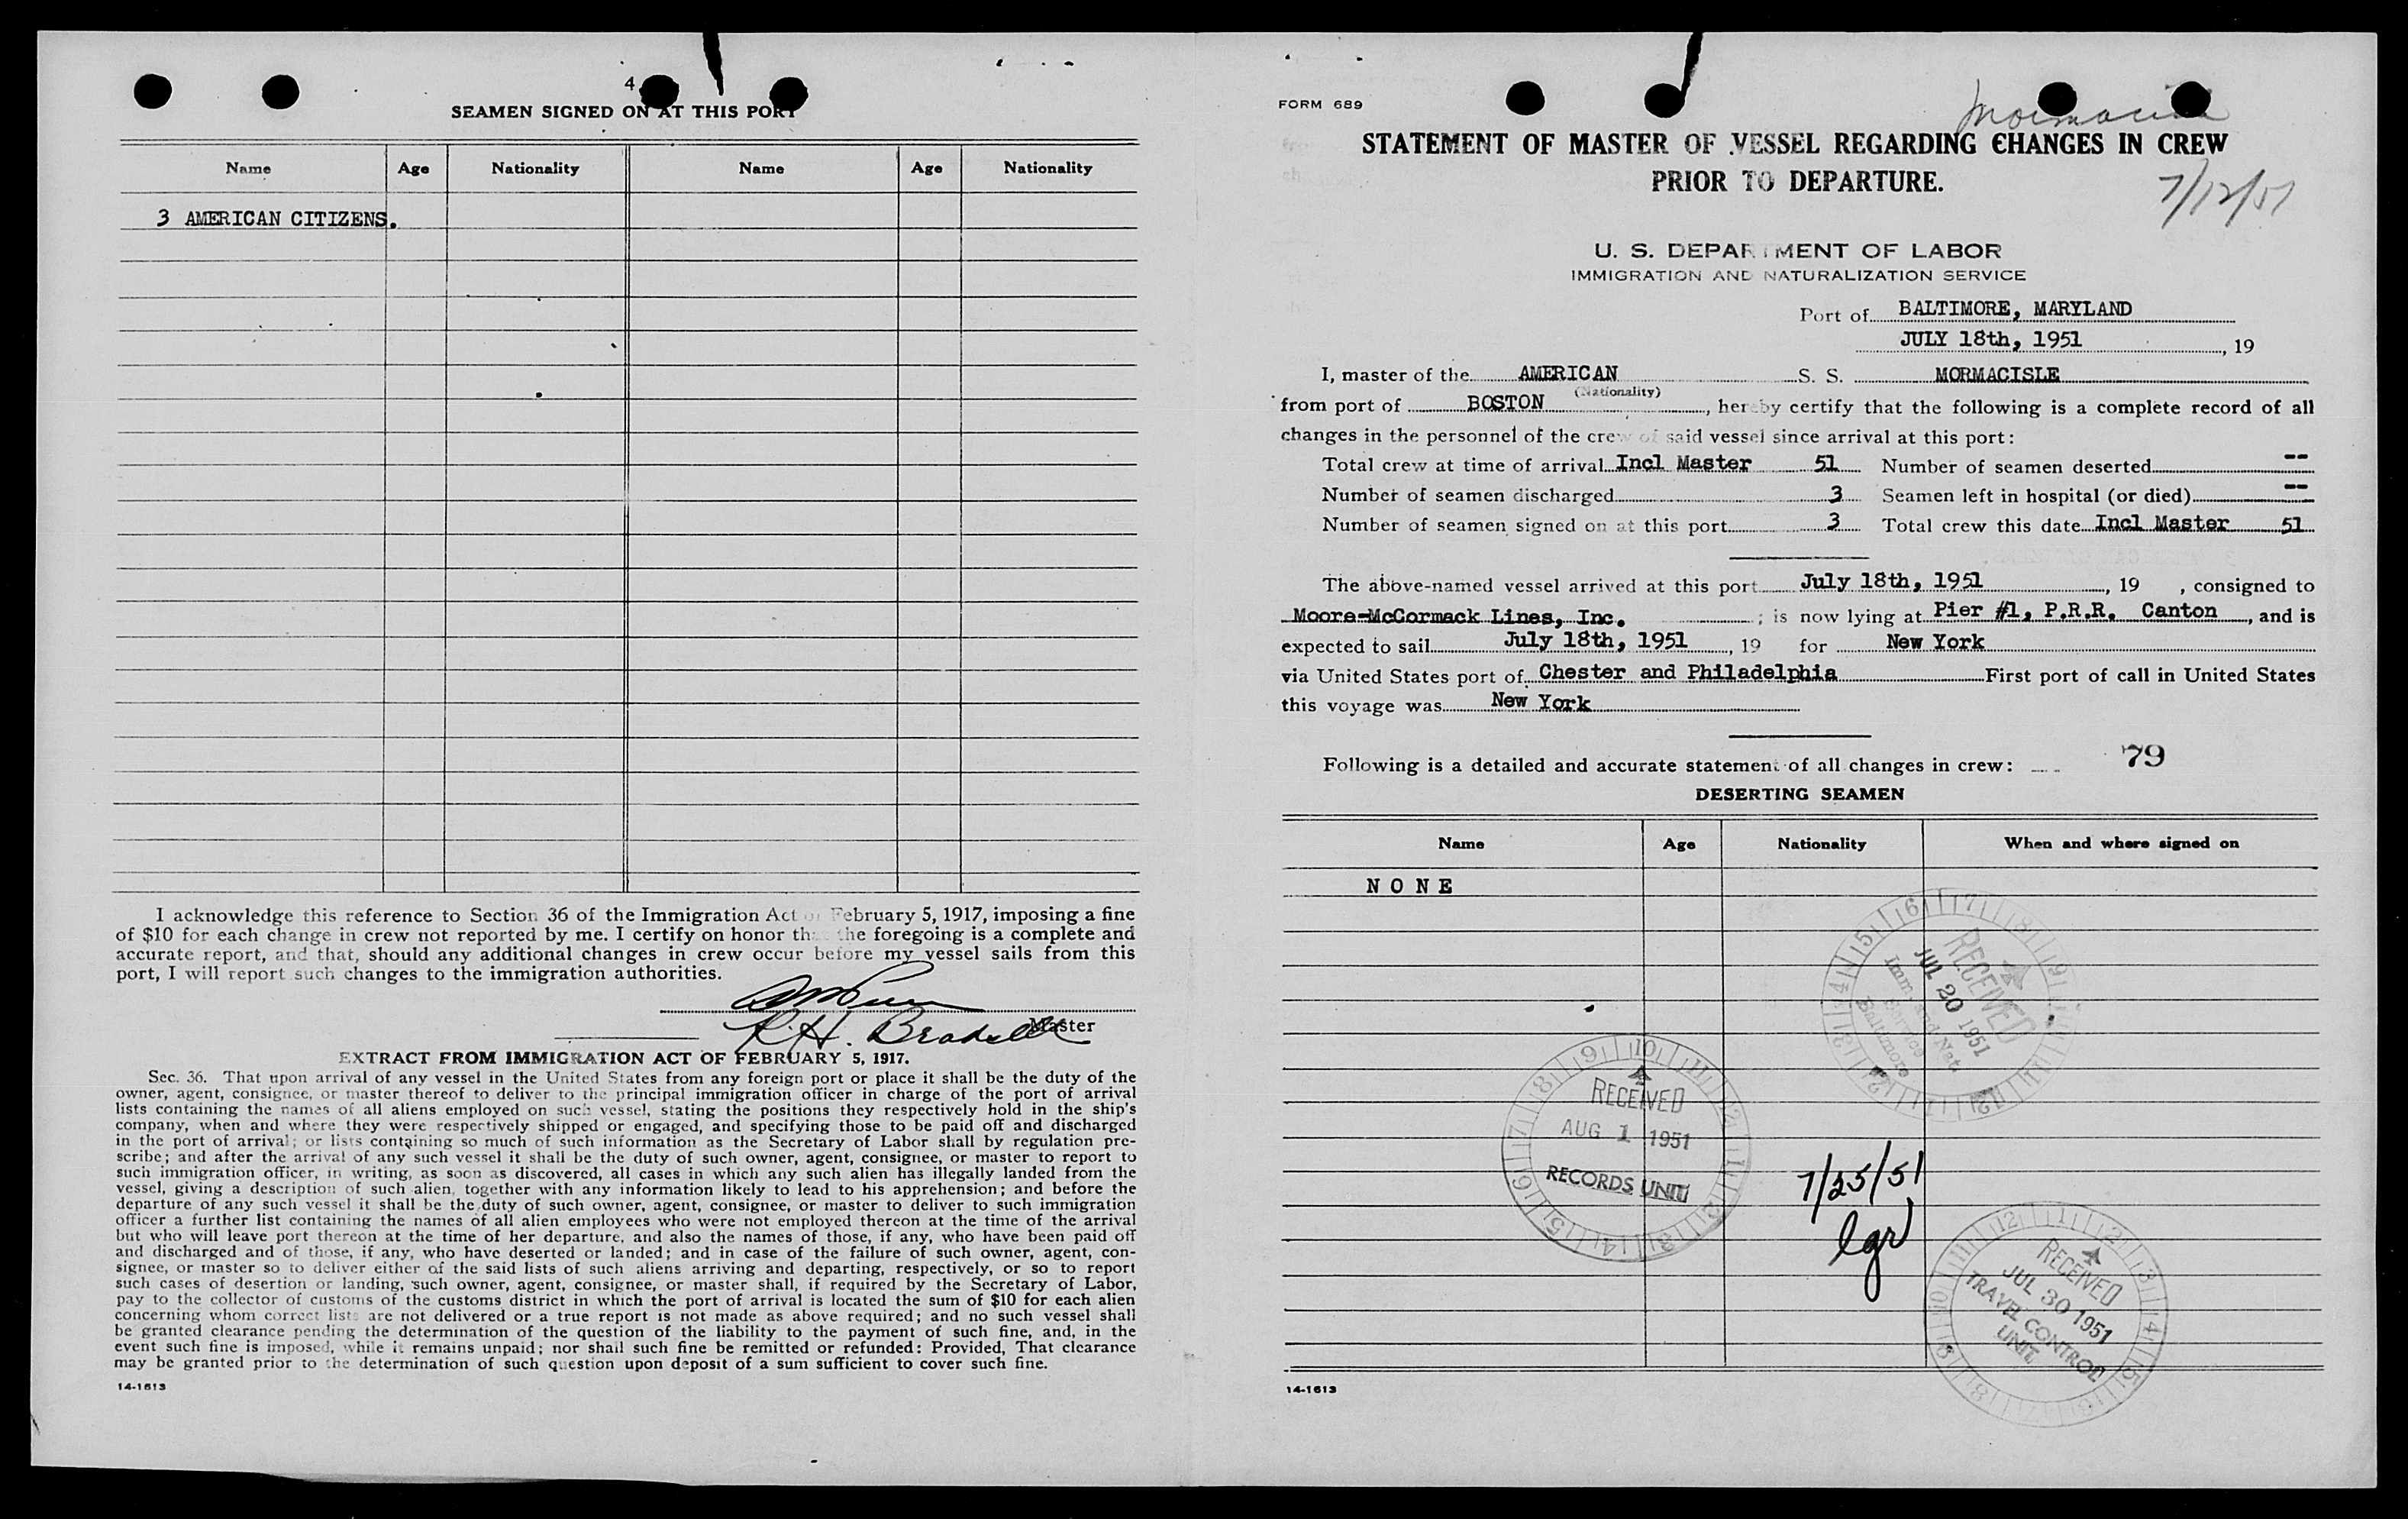 4
SEAMEN SIGNED ON AT THIS PORT
Name Age Nationality Name Age Nationality
3 AMERICAN CITIZENS.
I acknowledge this reference to Section 36 of the Immigration Act of February 5, 1917, imposing a fine
of $10 for each change in crew not reported by me. I certify on honor that the foregoing is a complete and
accurate report, and that, should any additional changes in crew occur before my vessel sails from this
port, I will report such changes to the immigration authorities.
R.H.
Master
EXTRACT FROM IMMIGRATION ACT OF FEBRUARY 5, 1917.
Sec. 36. That upon arrival of any vessel in the United States from any foreign port or place it shall be the duty of the
owner, agent, consignee, or master thereof to deliver to the principal immigration officer in charge of the port of arrival
lists containing the names of all aliens employed on such vessel, stating the positions they respectively hold in the ship's
company, when and where they were respectively shipped or engaged, and specifying those to be paid off and discharged
in the port of arrival; or lists containing so much of such information as the Secretary of Labor shall by regulation pre-
scribe; and after the arrival of any such vessel it shall be the duty of such owner, agent, consignee, or master to report to
such immigration officer, in writing, as soon as discovered, all cases in which any such alien has illegally landed from the
vessel, giving a description of such alien, together with any information likely to lead to his apprehension; and before the
departure of any such vessel it shall be the duty of such owner, agent, consignee, or master to deliver to such immigration
officer a further list containing the names of all alien employees who were not employed thereon at the time of the arrival
but who will leave port thereon at the time of her departure, and also the names of those, if any, who have been paid off
and discharged and of those, if any, who have deserted or landed; and in case of the failure of such owner, agent, con-
signee, or master so to deliver either of the said lists of such aliens arriving and departing, respectively, or so to report
such cases of desertion or landing, such owner, agent, consignee, or master shall, if required by the Secretary of Labor,
pay to the collector of customs of the customs district in which the port of arrival is located the sum of $10 for each alien
concerning whom correct lists are not delivered or a true report is not made as above required; and no such vessel shall
be granted clearance pending the determination of the question of the liability to the payment of such fine, and, in the
event such fine is imposed, while it remains unpaid; nor shall such fine be remitted or refunded: Provided, That clearance
may be granted prior to the determination of such question upon deposit of a sum sufficient to cover such fine.
14-1613
FORM 689
STATEMENT OF MASTER OF VESSEL REGARDING CHANGES IN CREW
PRIOR TO DEPARTURE.
7/12/51
U. S. DEPARTMENT OF LABOR
IMMIGRATION AND NATURALIZATION SERVICE
Port of BALTIMORE, MARYLAND
JULY 18th, 1951, 19
I, master of the AMERICAN S. S. MORMACISLE
(Nationality)
from port of BOSTON, hereby certify that the following is a complete record of all
changes in the personnel of the crew of said vessel since arrival at this port:
Total crew at time of arrival Incl Master 51 Number of seamen deserted --
Number of seamen discharged 3 Seamen left in hospital (or died) --
Number of seamen signed on at this port 3 Total crew this date Incl Master 51
The above-named vessel arrived at this port July 18th, 1951, 19 , consigned to
Moore-McCormack Lines, Inc. ; is now lying at Pier #1, P.R.R. Canton, and is
expected to sail July 18th, 1951, 19 for New York
via United States port of Chester and Philadelphia First port of call in United States
this voyage was New York
79
Following is a detailed and accurate statement of all changes in crew:
DESERTING SEAMEN
Name Age Nationality When and where signed on
NONE
RECEIVED
JUL 20 1951
Imm. and Nat.
Service
Baltimore
RECEIVED
AUG 1 1951
RECORDS UNIT
7/25/51
lgr
RECEIVED
JUL 30 1951
TRAVEL CONTROL
UNIT
14-1613